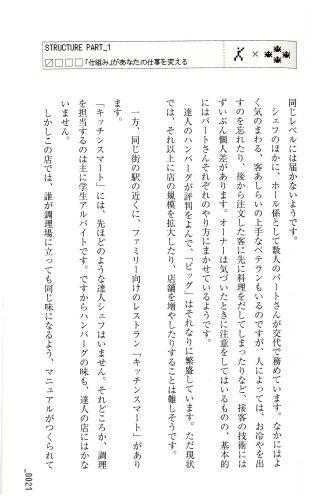 STRUCTURE PART_1
「仕組み」があなたの仕事を変える
同じレベルには届かないようです。
　シェフのほかに、ホール係として数人のパートさんが交代で務めています。なかにはよ
く気のまわる、客あしらいの上手なベテランもいるのですが、人によっては、お冷やを出
すのを忘れたり、後から注文した客に先に料理をだしてしまったりなど、接客の技術には
ずいぶん個人差があります。オーナーは気づいたときに注意をしてはいるものの、基本的
にはパートさんそれぞれのやり方にまかせているようです。
　達人のハンバーグが評判をよんで、「ビッグ」はそれなりに繁盛しています。ただ現状
では、それ以上に店の規模を拡大したり、店舗を増やしたりすることは難しそうです。
　一方、同じ街の駅の近くに、ファミリー向けのレストラン「キッチンスマート」があり
ます。
「キッチンスマート」には、先ほどのような達人シェフはいません。それどころか、調理
を担当するのは主に学生アルバイトです。ですからハンバーグの味も、達人の店にはかな
いません。
　しかしこの店では、誰が調理場に立っても同じ味になるよう、マニュアルがつくられて
_0021